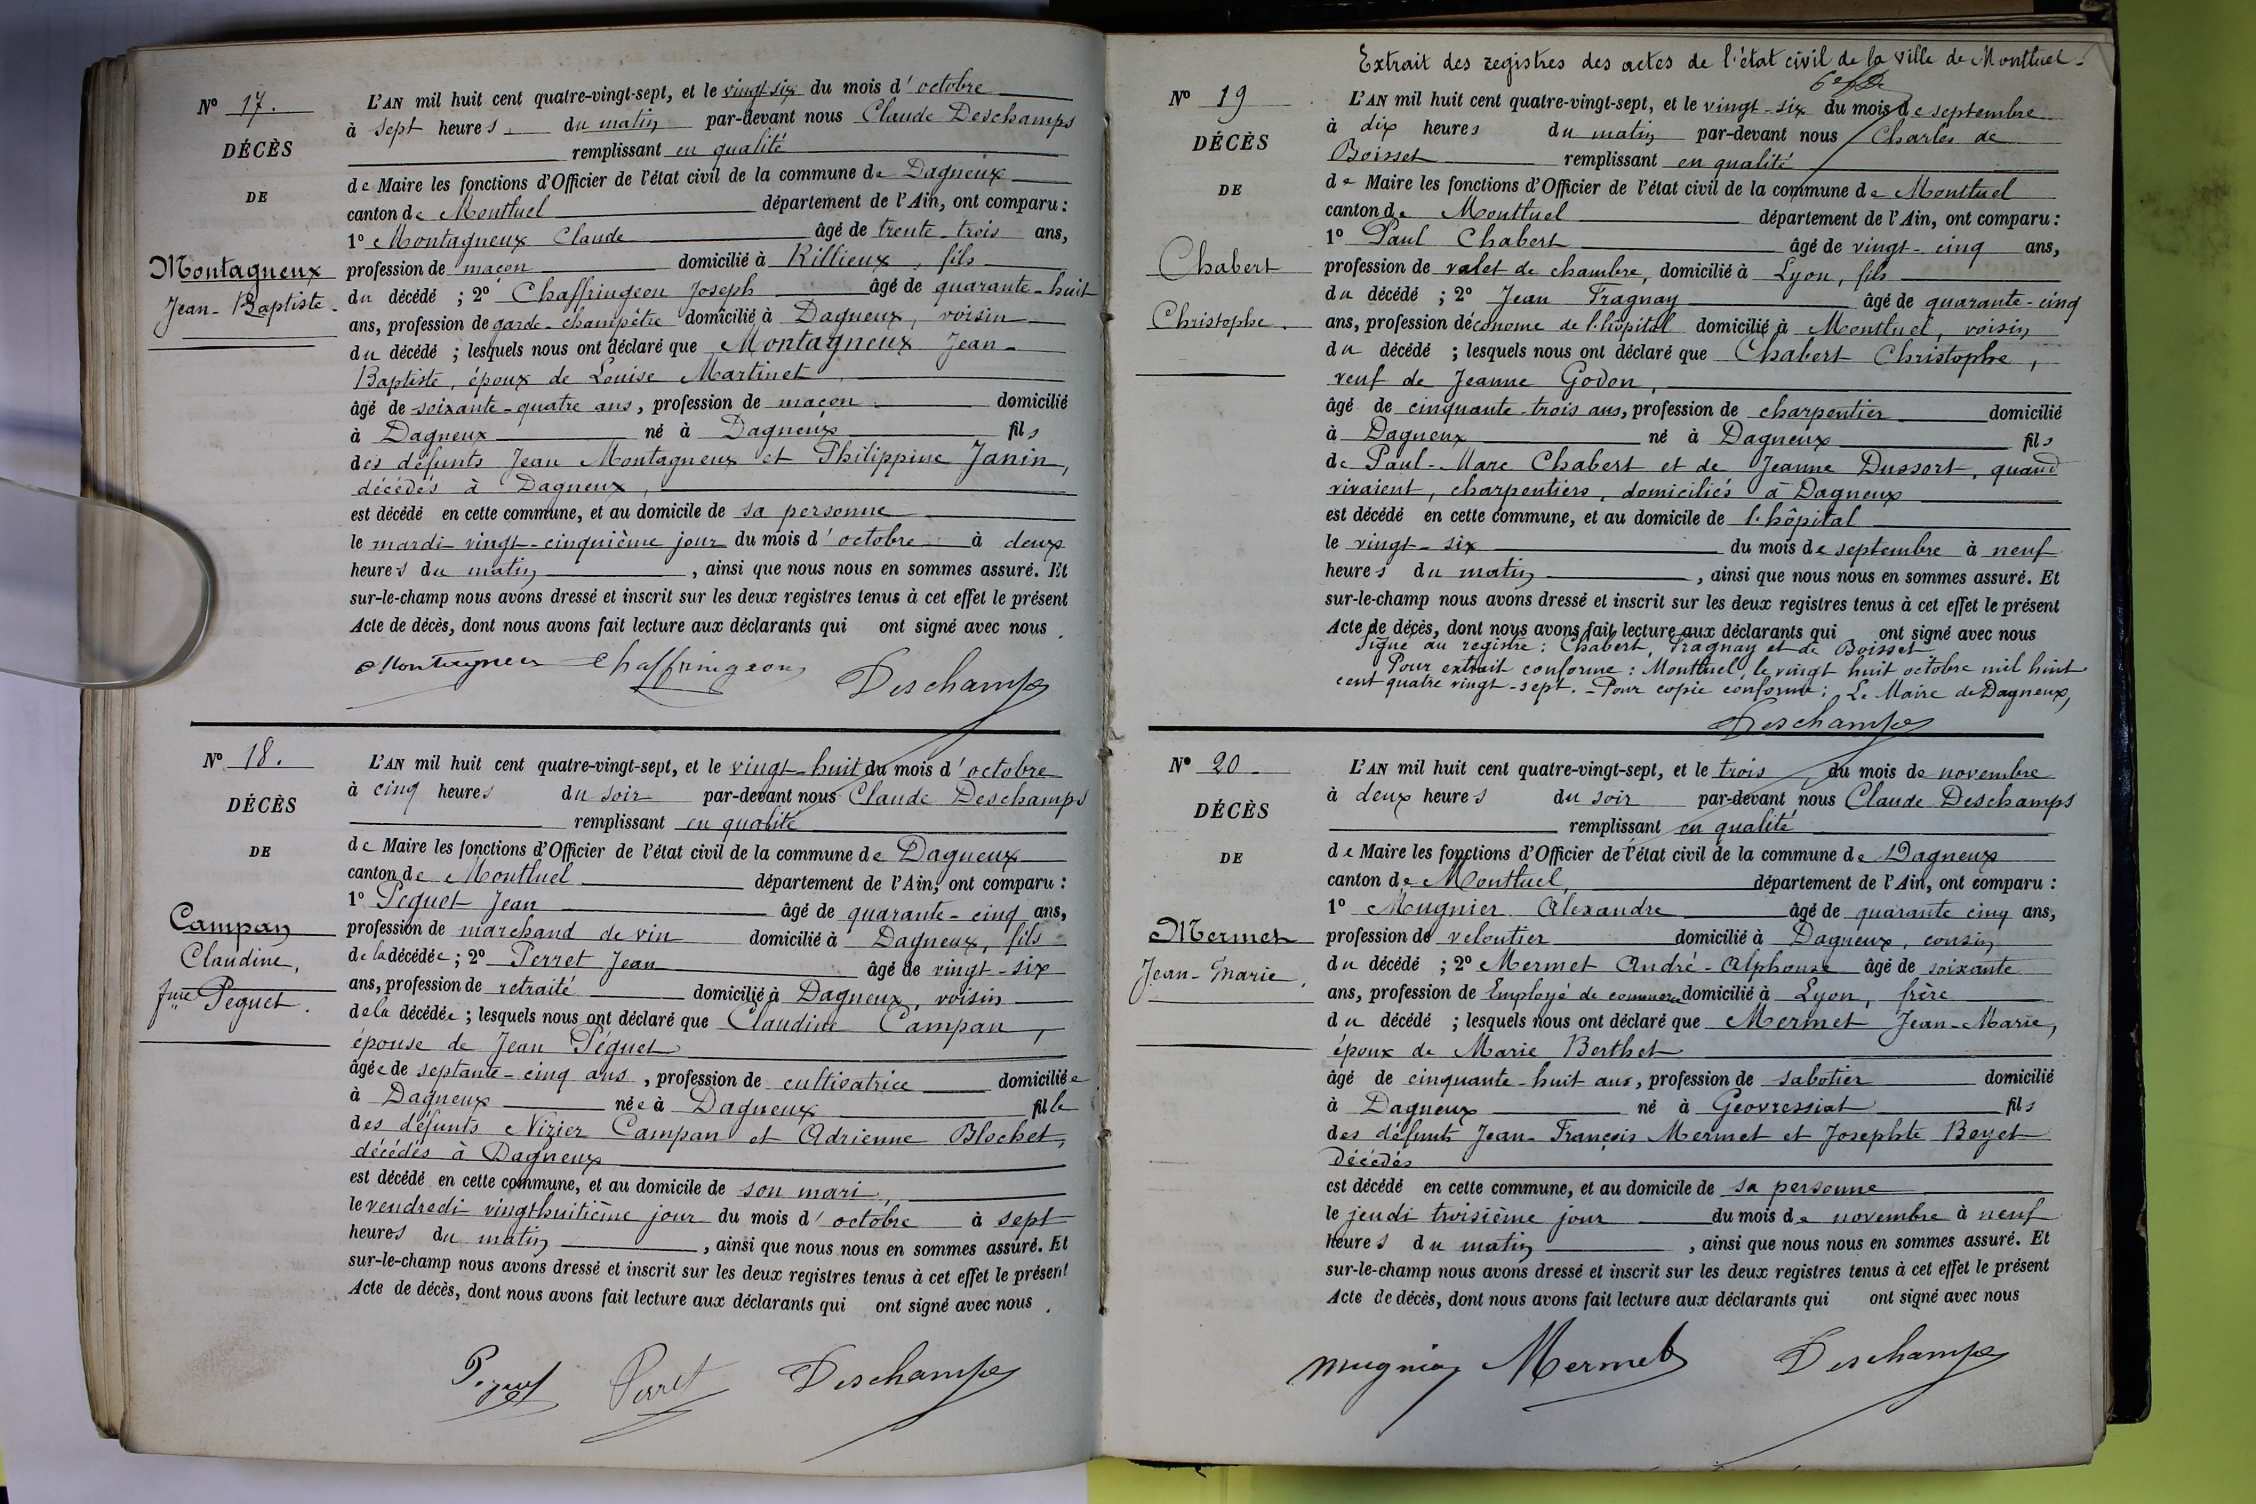 Nº 17.
DÉCÈS
DE
Montagneux
Jean-Baptiste.
L'AN mil huit cent quatre-vingt-sept, et le vingt-six du mois d'octobre
à sept heures du matin par-devant nous Claude Deschamps
remplissant en qualité
de Maire les fonctions d'Officier de l'état civil de la commune de Dagneux
canton de Montluel département de l'Ain, ont comparu :
1º Montagneux Claude âgé de trente-trois ans,
profession de maçon domicilié à Rillieux, fils
du décédé ; 2º Chaffringeon Joseph âgé de quarante-huit
ans, profession de garde-champêtre domicilié à Dagneux, voisin
du décédé ; lesquels nous ont déclaré que Montagneux Jean-
Baptiste, époux de Louise Martinet,
âgé de soixante-quatre ans, profession de maçon domicilié
à Dagneux né à Dagneux fils
des défunts Jean Montagneux et Philippine Janin,
décédés à Dagneux,
est décédé en cette commune, et au domicile de sa personne
le mardi vingt-cinquième jour du mois d'octobre à deux
heures du matin, ainsi que nous nous en sommes assuré. Et
sur-le-champ nous avons dressé et inscrit sur les deux registres tenus à cet effet le présent
Acte de décès, dont nous avons fait lecture aux déclarants qui ont signé avec nous.
Montagneux Chaffringeon Deschamps
Nº 18.
DÉCÈS
DE
Campan
Claudine,
fme Peguet.
L'AN mil huit cent quatre-vingt-sept, et le vingt-huit du mois d'octobre
à cinq heures du soir par-devant nous Claude Deschamps
remplissant en qualité
de Maire les fonctions d'Officier de l'état civil de la commune de Dagneux
canton de Montluel département de l'Ain, ont comparu :
1º Peguet Jean âgé de quarante-cinq ans,
profession de marchand de vin domicilié à Dagneux, fils
de la décédée ; 2º Perret Jean âgé de vingt-six
ans, profession de retraité domicilié à Dagneux, voisin
de la décédée ; lesquels nous ont déclaré que Claudine Campan,
épouse de Jean Péguet
âgée de septante-cinq ans, profession de cultivatrice domiciliée
à Dagneux née à Dagneux fille
des défunts Nizier Campan et Adrienne Blochet,
décédés à Dagneux
est décédé en cette commune, et au domicile de son mari,
le vendredi vingthuitième jour du mois d'octobre à sept
heures du matin, ainsi que nous nous en sommes assuré. Et
sur-le-champ nous avons dressé et inscrit sur les deux registres tenus à cet effet le présent
Acte de décès, dont nous avons fait lecture aux déclarants qui ont signé avec nous.
Peguet Perret Deschamps
Extrait des registres des actes de l'état civil de la ville de Montluel.
Nº 19
DÉCÈS
DE
Chabert
Christophe.
L'AN mil huit cent quatre-vingt-sept, et le vingt-six du mois de septembre
à dix heures du matin par-devant nous Charles de
Boisset remplissant en qualité
de Maire les fonctions d'Officier de l'état civil de la commune de Montluel
canton de Montluel département de l'Ain, ont comparu :
1º Paul Chabert âgé de vingt-cinq ans,
profession de valet de chambre, domicilié à Lyon, fils
du décédé ; 2º Jean Fragnay âgé de quarante-cinq
ans, profession d'économe de l'hôpital domicilié à Montluel, voisin
du décédé ; lesquels nous ont déclaré que Chabert Christophe,
veuf de Jeanne Godon,
âgé de cinquante-trois ans, profession de charpentier domicilié
à Dagneux né à Dagneux fils
de Paul-Marc Chabert et de Jeanne Dussort, quand
vivaient, charpentiers, domiciliés à Dagneux
est décédé en cette commune, et au domicile de l'hôpital
le vingt-six du mois de septembre à neuf
heures du matin, ainsi que nous nous en sommes assuré. Et
sur-le-champ nous avons dressé et inscrit sur les deux registres tenus à cet effet le présent
Acte de décès, dont nous avons fait lecture aux déclarants qui ont signé avec nous
Signé au registre : Chabert, Fragnay et de Boisset
Pour extrait conforme : Montluel, le vingt huit octobre mil huit
cent quatre vingt-sept. - Pour copie conforme : Le Maire de Dagneux,
Deschamps
Nº 20
DÉCÈS
DE
Mermet
Jean-Marie,
L'AN mil huit cent quatre-vingt-sept, et le trois du mois de novembre
à deux heures du soir par-devant nous Claude Deschamps
remplissant en qualité
de Maire les fonctions d'Officier de l'état civil de la commune de Dagneux
canton de Montluel, département de l'Ain, ont comparu :
1º Mugnier Alexandre âgé de quarante cinq ans,
profession de veloutier domicilié à Dagneux, cousin
du décédé ; 2º Mermet André-Alphonse âgé de soixante
ans, profession de Employé de commerce domicilié à Lyon, frère
du décédé ; lesquels nous ont déclaré que Mermet Jean-Marie,
époux de Marie Berthet
âgé de cinquante-huit ans, profession de sabotier domicilié
à Dagneux né à Géovressiat fils
des défunts Jean-François Mermet et Josephte Beyet
Décédés
est décédé en cette commune, et au domicile de sa personne
le jeudi troisième jour du mois de novembre à neuf
heures du matin, ainsi que nous nous en sommes assuré. Et
sur-le-champ nous avons dressé et inscrit sur les deux registres tenus à cet effet le présent
Acte de décès, dont nous avons fait lecture aux déclarants qui ont signé avec nous
Mugnier Mermet Deschamps